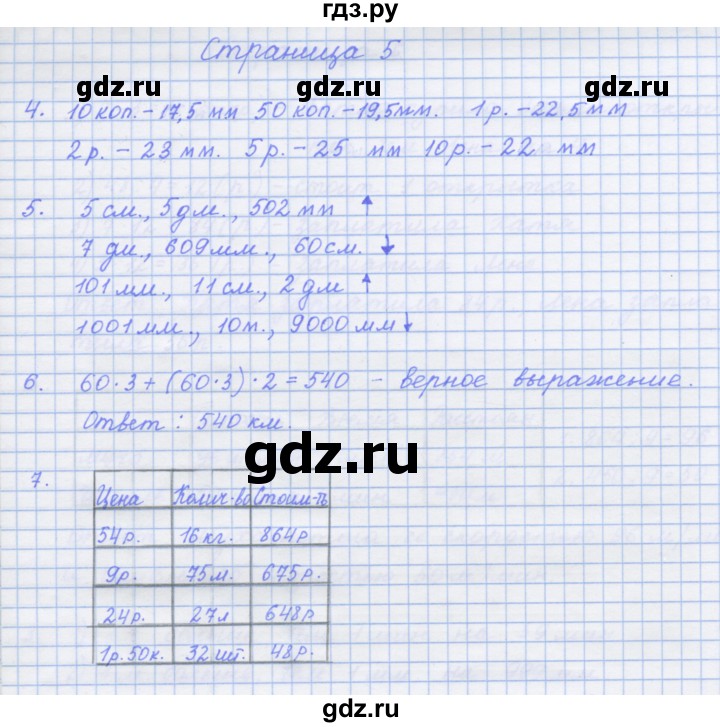 гдз.ру
Страница 5
gdz.ru gdz.ru
4. 10 коп. – 17,5 мм 50 коп. – 19,5 мм. 1 р. – 22,5 мм
2 р. – 23 мм. 5 р. – 25 мм 10 р. – 22 мм
5. 5 см., 5 дм., 502 мм ↑
7 дм, 609 мм., 60 см. ↓
101 мм., 11 см., 2 дм ↑
gdz.ru gdz.ru
1001 мм., 10 м., 9000 мм ↓
6. 60·3 + (60·3)·2 = 540 – верное выражение.
Ответ: 540 км.
gdz.ru
7.
Цена Колич-во Стоим-ть
54 р. 16 кг. 864 р
9 р. 75 м. 675 р.
24 р. 27 л 648 р
1 р. 50 к. 32 шт. 48 р.
gdz.ru gdz.ru
gdz.ru